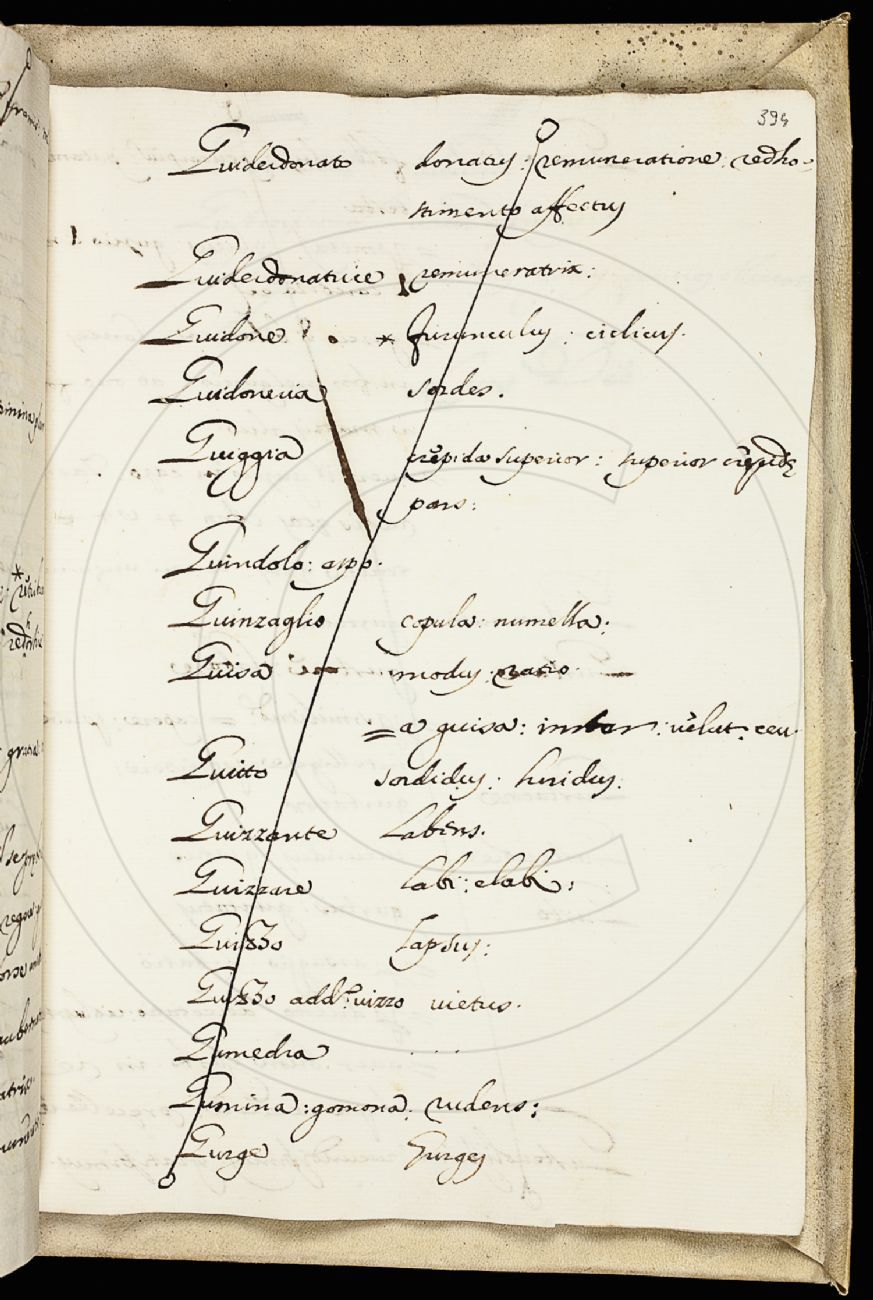 394
Guiderdonato donatus: remuneratione redho-
stimento affectus
Guiderdonatrice remuneratrix:
Guidone * furunculus:
Guidoneria sordes.
Guiggia crepida superior: superior crepidę
pars:
Guindolo: aspo.
Guinzaglio copula: numella:
Guisa modus: ratio. —
= a guisa: instar: velut: ceu
Guitto sordidus: luridus:
Guizzante Labens.
Guizzare Labi: elabi:
Guizzo Lapsus:
Guizzo add. vizzo vietus.
Gumedra . . .
Gumina: gomona: rudens:
Gurge Gurges